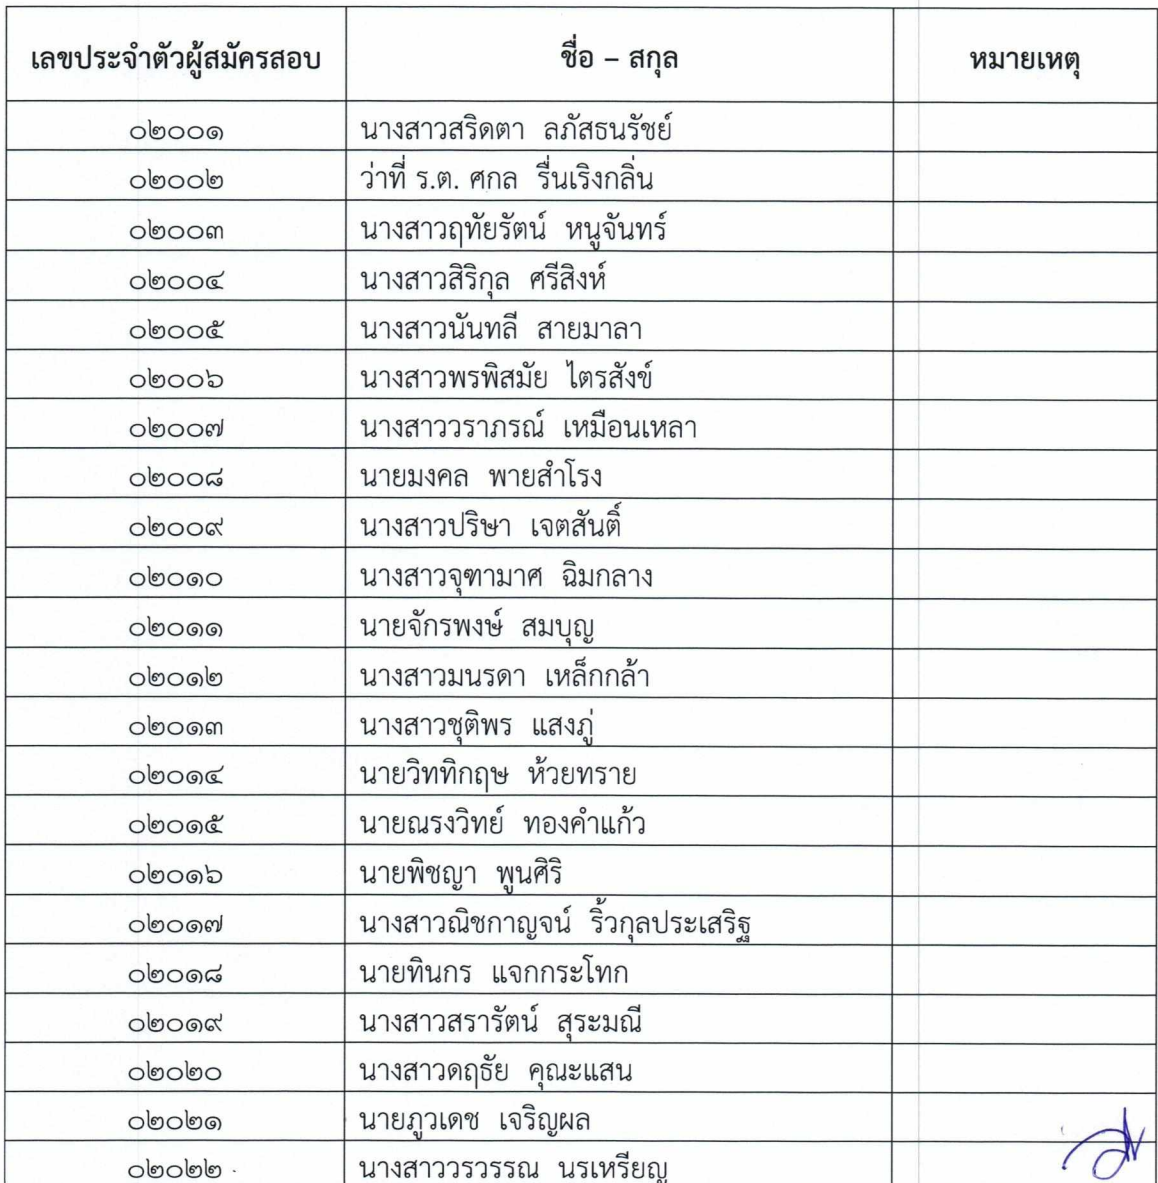 เลขประจำตัวผู้สมัครสอบ ชื่อ – สกุล หมายเหตุ
๐๒๐๐๑ นางสาวสริดตา ลภัสธนรัชย์
๐๒๐๐๒ ว่าที่ ร.ต. ศกล รื่นเริงกลิ่น
๐๒๐๐๓ นางสาวฤทัยรัตน์ หนูจันทร์
๐๒๐๐๔ นางสาวสิริกุล ศรีสิงห์
๐๒๐๐๕ นางสาวนันทลี สายมาลา
๐๒๐๐๖ นางสาวพรพิสมัย ไตรสังข์
๐๒๐๐๗ นางสาววราภรณ์ เหมือนเหลา
๐๒๐๐๘ นายมงคล พายสำโรง
๐๒๐๐๙ นางสาวปริษา เจตสันติ์
๐๒๐๑๐ นางสาวจุฑามาศ ฉิมกลาง
๐๒๐๑๑ นายจักรพงษ์ สมบุญ
๐๒๐๑๒ นางสาวมนรดา เหล็กกล้า
๐๒๐๑๓ นางสาวชุติพร แสงภู่
๐๒๐๑๔ นายวิททิกฤษ ห้วยทราย
๐๒๐๑๕ นายณรงวิทย์ ทองคำแก้ว
๐๒๐๑๖ นายพิชญา พูนศิริ
๐๒๐๑๗ นางสาวณิชกาญจน์ ริ้วกุลประเสริฐ
๐๒๐๑๘ นายทินกร แจกกระโทก
๐๒๐๑๙ นางสาวสรารัตน์ สุระมณี
๐๒๐๒๐ นางสาวดฤธัย คุณะแสน
๐๒๐๒๑ นายภูวเดช เจริญผล
๐๒๐๒๒ นางสาววรวรรณ นรเหรียญ